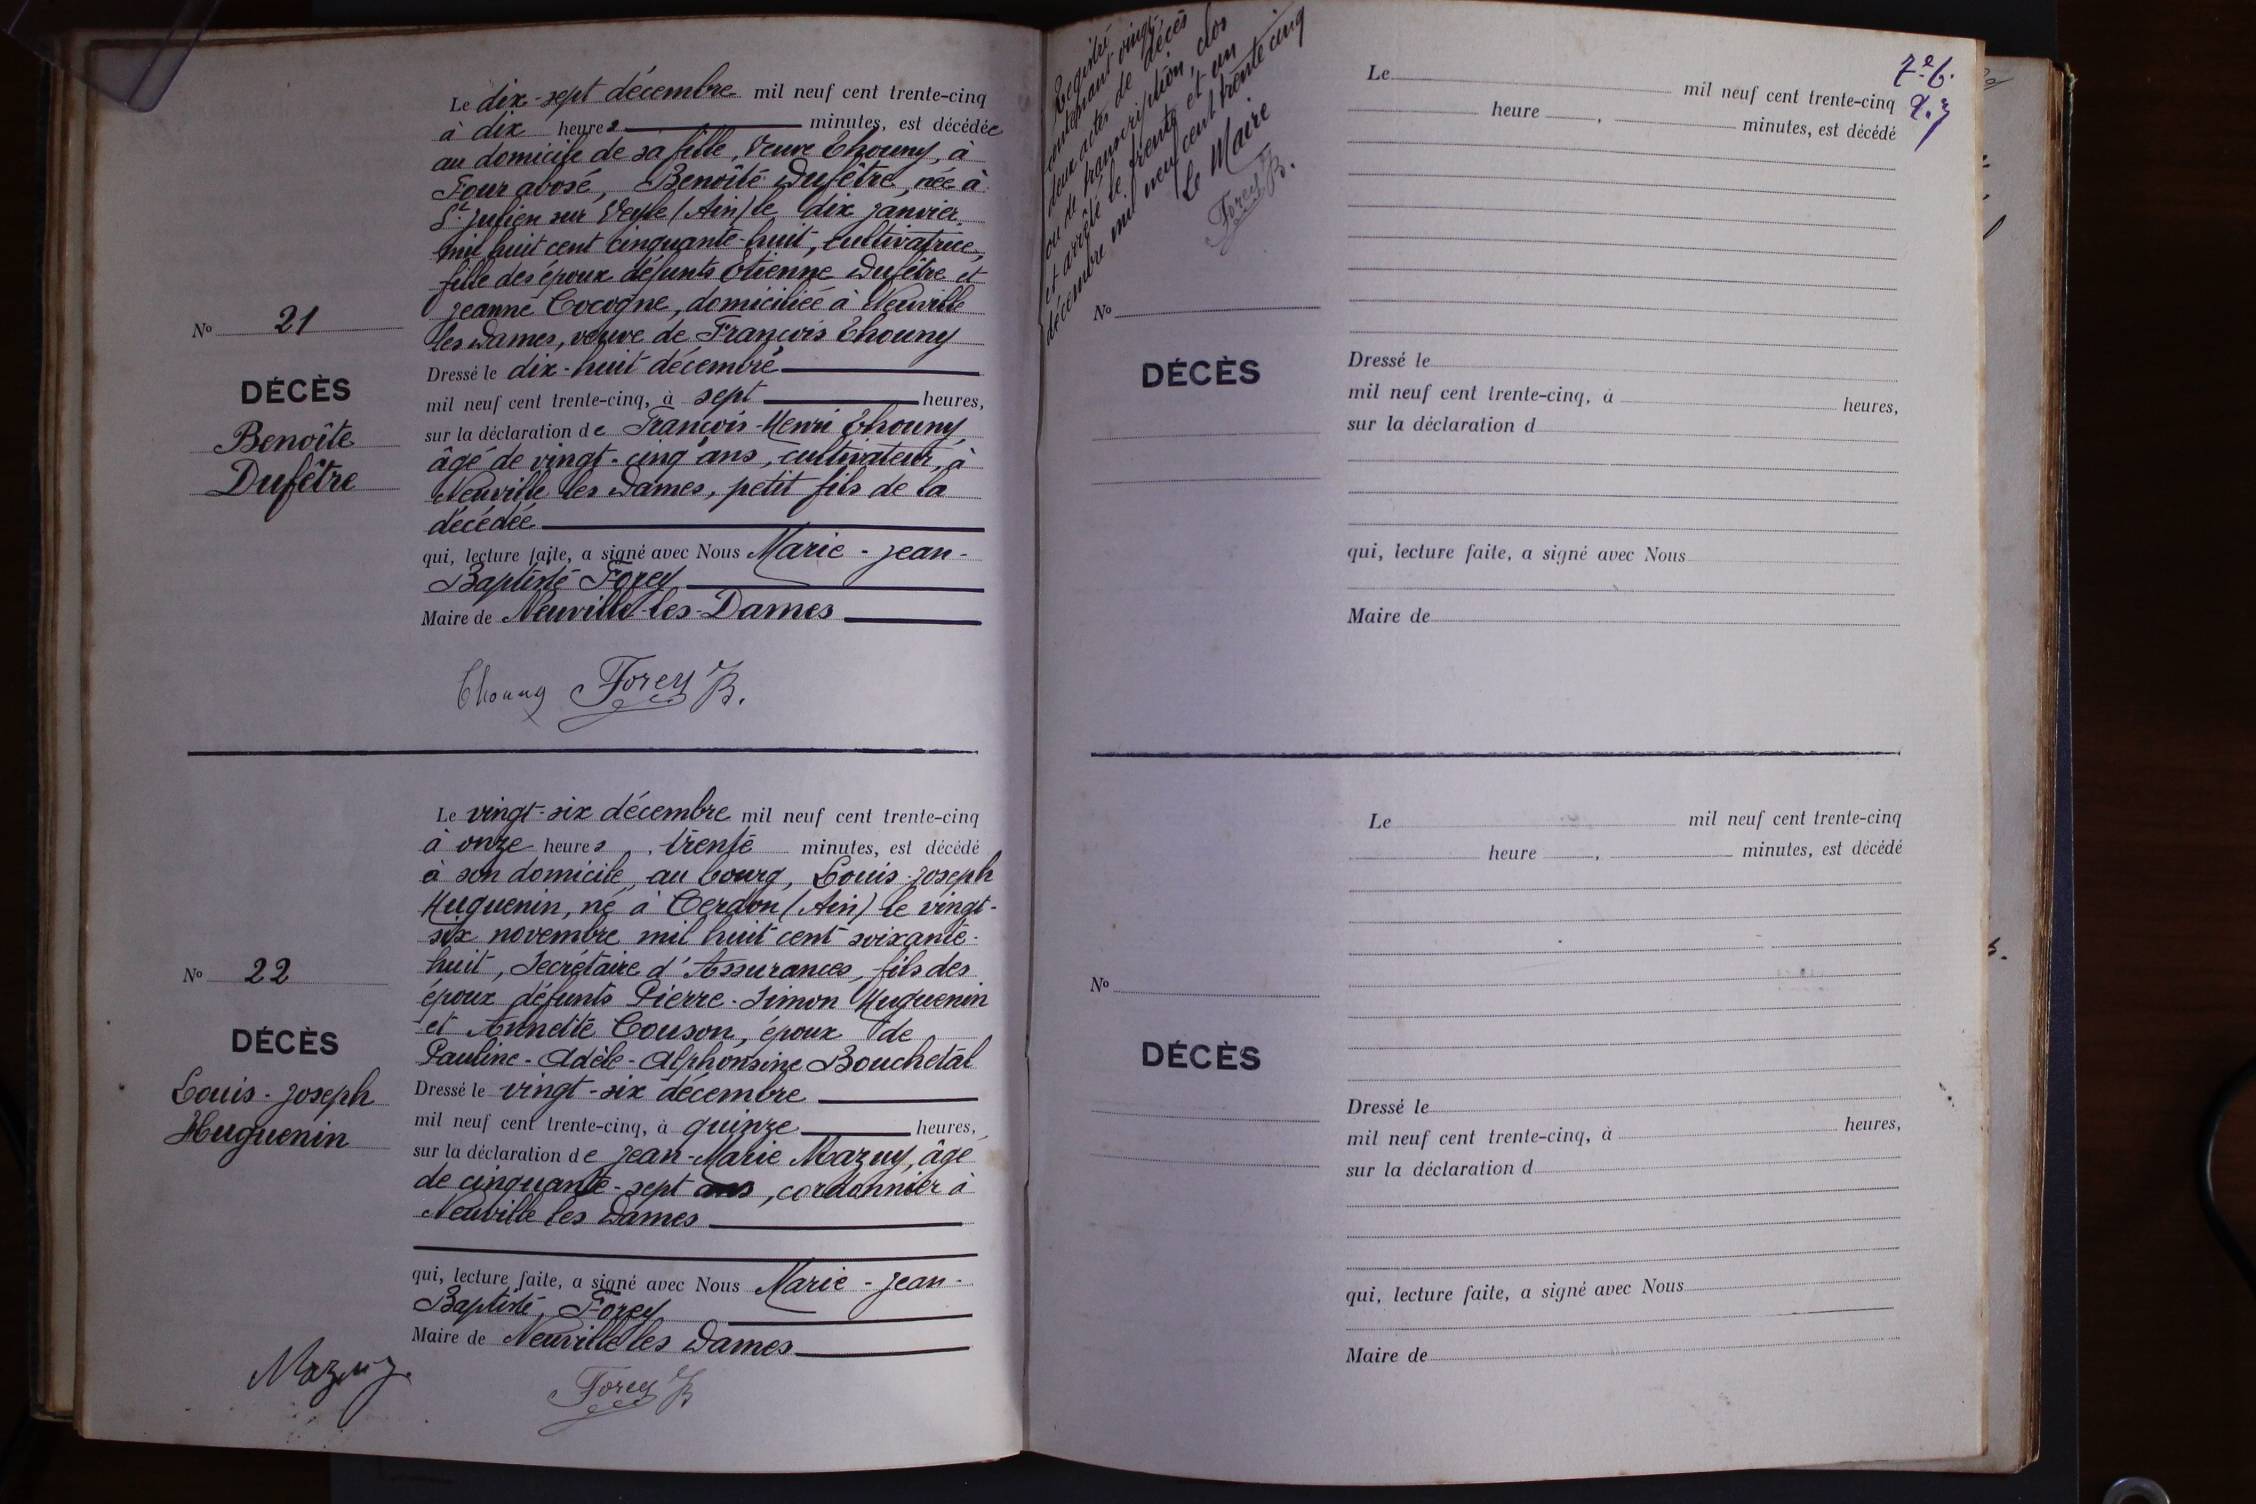 Le dix-sept décembre mil neuf cent trente-cinq
à dix heures minutes, est décédée
au domicile de sa fille, Veuve Chouny, à
Four abosé, Benoîte Dufêtre, née à
St Julien sur Veyle (Ain) le dix janvier
mil huit cent cinquante-huit, cultivatrice,
fille des époux défunts Etienne Dufêtre et
Jeanne Cocogne, domiciliée à Neuville
les Dames, veuve de François Chouny
Dressé le dix-huit décembre
mil neuf cent trente-cinq, à sept heures,
sur la déclaration de François-Henri Chouny,
âgé de vingt-cinq ans, cultivateur, à
Neuville les Dames, petit fils de la
décédée
qui, lecture faite, a signé avec Nous Marie-Jean-
Baptiste Forey
Maire de Neuville-les-Dames
Chouny Forey B.
No 21
DÉCÈS
Benoîte
Dufêtre
Le vingt-six décembre mil neuf cent trente-cinq
à onze heures, trente minutes, est décédé
à son domicile, au bourg, Louis-Joseph
Huguenin, né à Cerdon (Ain) le vingt-
six novembre mil huit cent soixante-
huit, Secrétaire d'Assurances, fils des
époux défunts Pierre-Simon Huguenin
et Annette Couson, époux de
Pauline-Adèle-Alphonsine Bouchetal
Dressé le vingt-six décembre
mil neuf cent trente-cinq, à quinze heures,
sur la déclaration de Jean-Marie Mazuy, âgé
de cinquante-sept ans, cordonnier à
Neuville les Dames
qui, lecture faite, a signé avec Nous Marie-Jean-
Baptiste, Forey
Maire de Neuville les Dames
Mazuy
Forey B
No 22
DÉCÈS
Louis-Joseph
Huguenin
Registre
contenant vingt-
deux actes de décès
ou de transcription, clos
et arrêté le trente et un
décembre mil neuf cent trente cinq
Le Maire
Forey B.
Le mil neuf cent trente-cinq
heure , minutes, est décédé
No
DÉCÈS
Dressé le
mil neuf cent trente-cinq, à heures,
sur la déclaration d
qui, lecture faite, a signé avec Nous
Maire de
Le mil neuf cent trente-cinq
heure , minutes, est décédé
No
DÉCÈS
Dressé le
mil neuf cent trente-cinq, à heures,
sur la déclaration d
qui, lecture faite, a signé avec Nous
Maire de